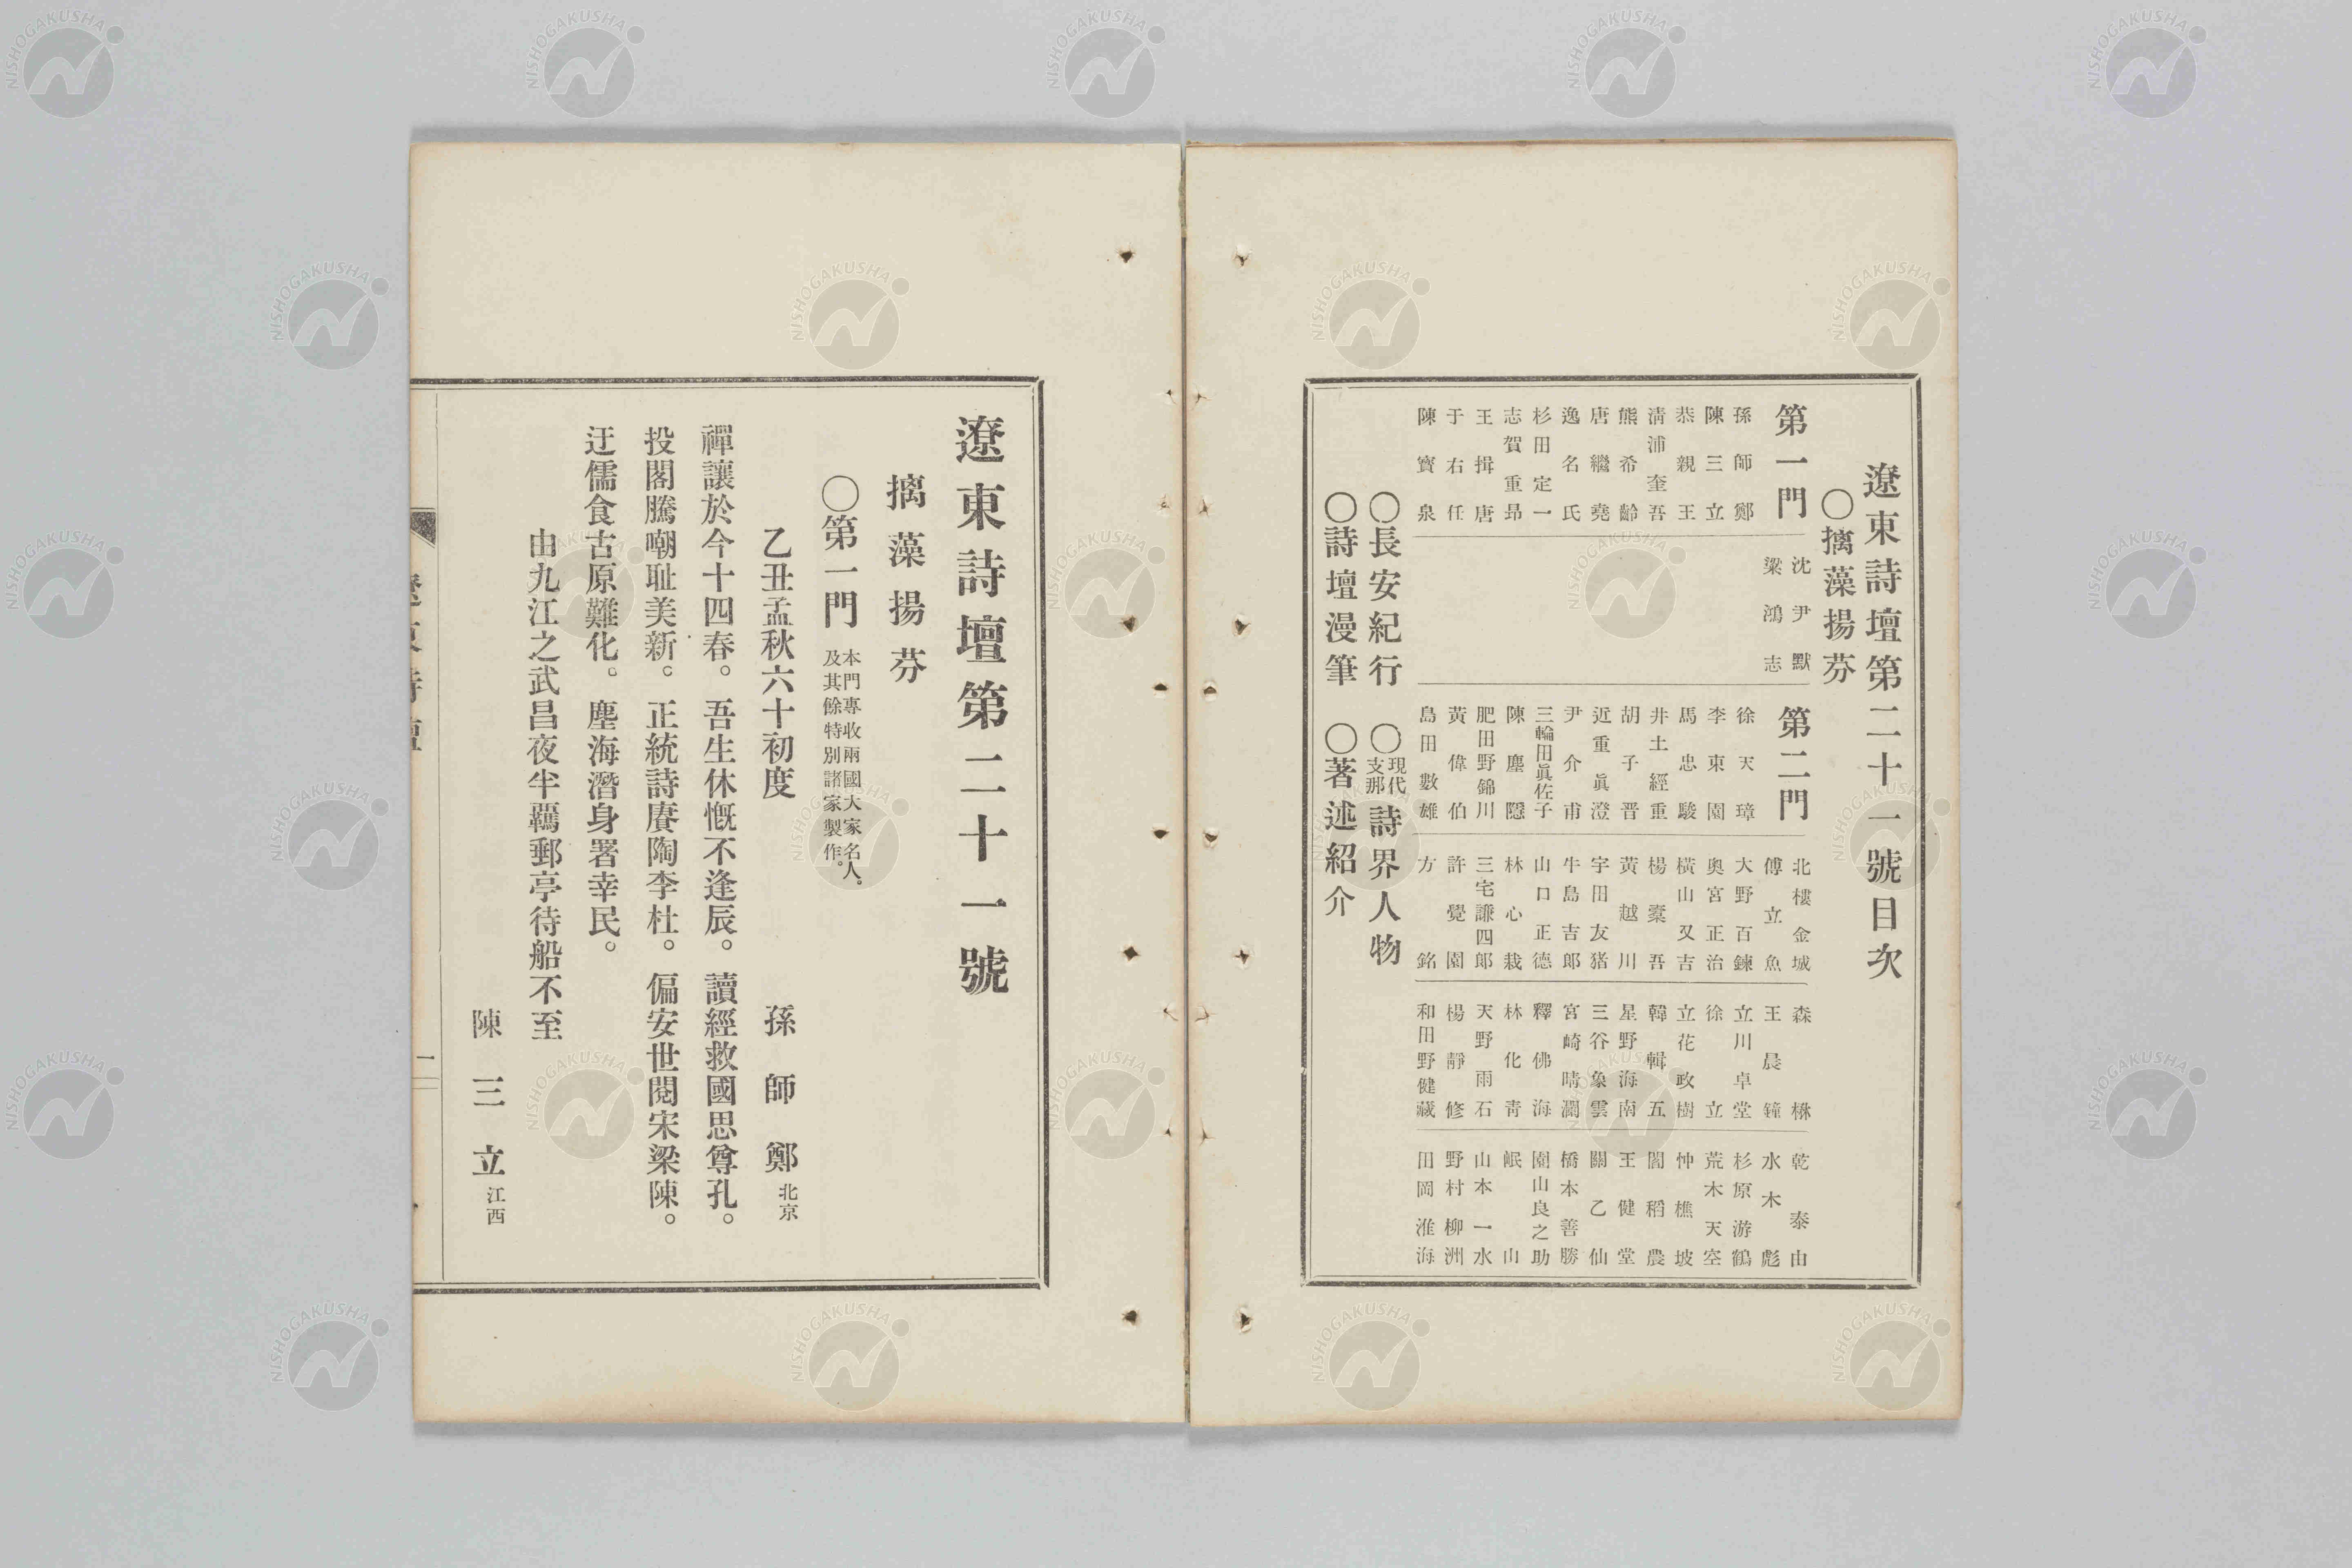 遼東詩壇第二十一號目次
○摛藻揚芬
第一門
孫師鄭
陳三立
恭親王
淸浦奎吾
熊希齡
唐繼堯
逸名氏
杉田定一
志賀重昂
王揖唐
于右任
陳寶泉
沈尹默
梁鴻志
第二門
徐天璋
李東園
馬忠駿
井土經重
胡子晋
近重眞澄
尹介甫
三輪田眞佐子
陳塵隱
肥田野錦川
黃偉伯
島田數雄
北樓金城
傅立魚
大野百鍊
奥宮正治
橫山又吉
楊槖吾
黃越川
宇田友猪
牛島吉郎
山口正德
林心栽
三宅謙四郎
許覺園
方銘
森楙
王晨鐘
立川卓堂
徐立
立花政樹
韓輯五
星野海南
三谷象雲
宮崎晴瀾
釋佛海
林化靑
天野雨石
楊靜修
和田野健藏
乾泰由
水木彪
杉原游鶴
荒木天空
忡樵坡
閻稻農
王健堂
關乙仙
橋本善勝
園山良之助
岷山
山本一水
野村柳洲
田岡淮海
○長安紀行
○現代支那詩界人物
○詩壇漫筆
○著述紹介
遼東詩壇第二十一號
摛藻揚芬
○第一門 本門專收兩國大家名人。及其餘特別諸家製作。
乙丑孟秋六十初度 孫師鄭 北京
禪讓於今十四春。吾生休慨不逢辰。讀經救國思尊孔。
投閣騰嘲耻美新。正統詩賡陶李杜。偏安世閱宋梁陳。
迂儒食古原難化。塵海潛身署幸民。
由九江之武昌夜半羈郵亭待船不至
陳三立 江西
一